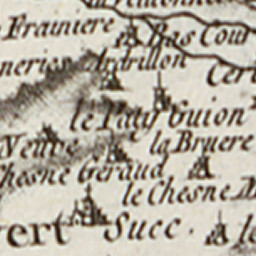 Frainiere
Bas Cour
neries Ardrillon
Cer
le Guion
Veuve la Bruere
Chesne Geraud
le Chesne
vert Succ.
le